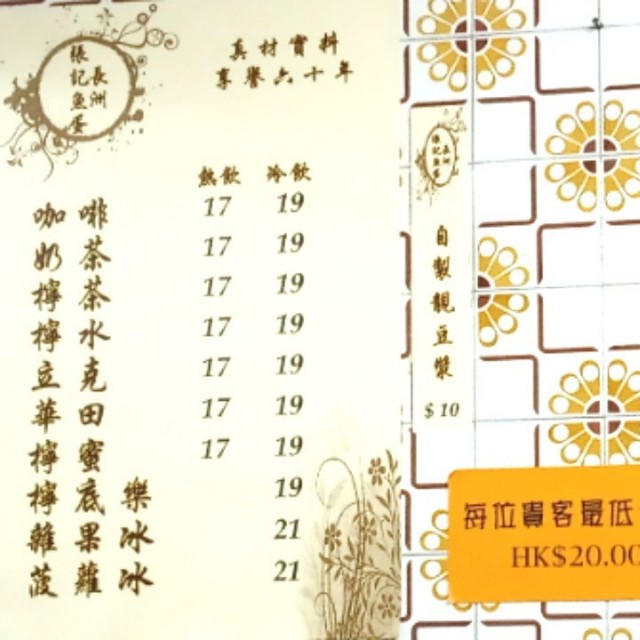 長洲
張記魚蛋
真材實料
享譽六十年
熱飲 冷飲
咖啡 17 19
奶茶 17 19
檸茶 17 19
檸水 17 19
立克 17 19
華田 17 19
檸蜜 17 19
檸底樂 19
雜果冰 21
菠蘿冰 21
長洲
張記魚蛋
自製靚豆漿
$10
每位貴客最低
HK$20.00